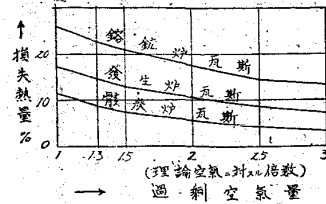 損失熱量 %
20
10
0
鎔鉱炉瓦斯
發生炉瓦斯
骸炭炉瓦斯
1 1.3 1.5 2 2.5 3
(理論空氣ニ対スル倍数)
過剰空氣量